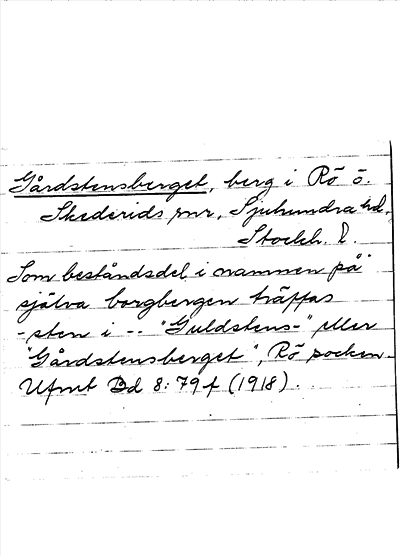 Gårdstensberget, berg i Rö ö.
Skederids snr, Sjuhundra hd,
Stockh. l.
Som beståndsdel i namnen på
själva borgbergen träffas
-sten i -- "Guldstens-" eller
"Gårdstensberget", Rö socken.
Ufmt Bd 8:79 f (1918).